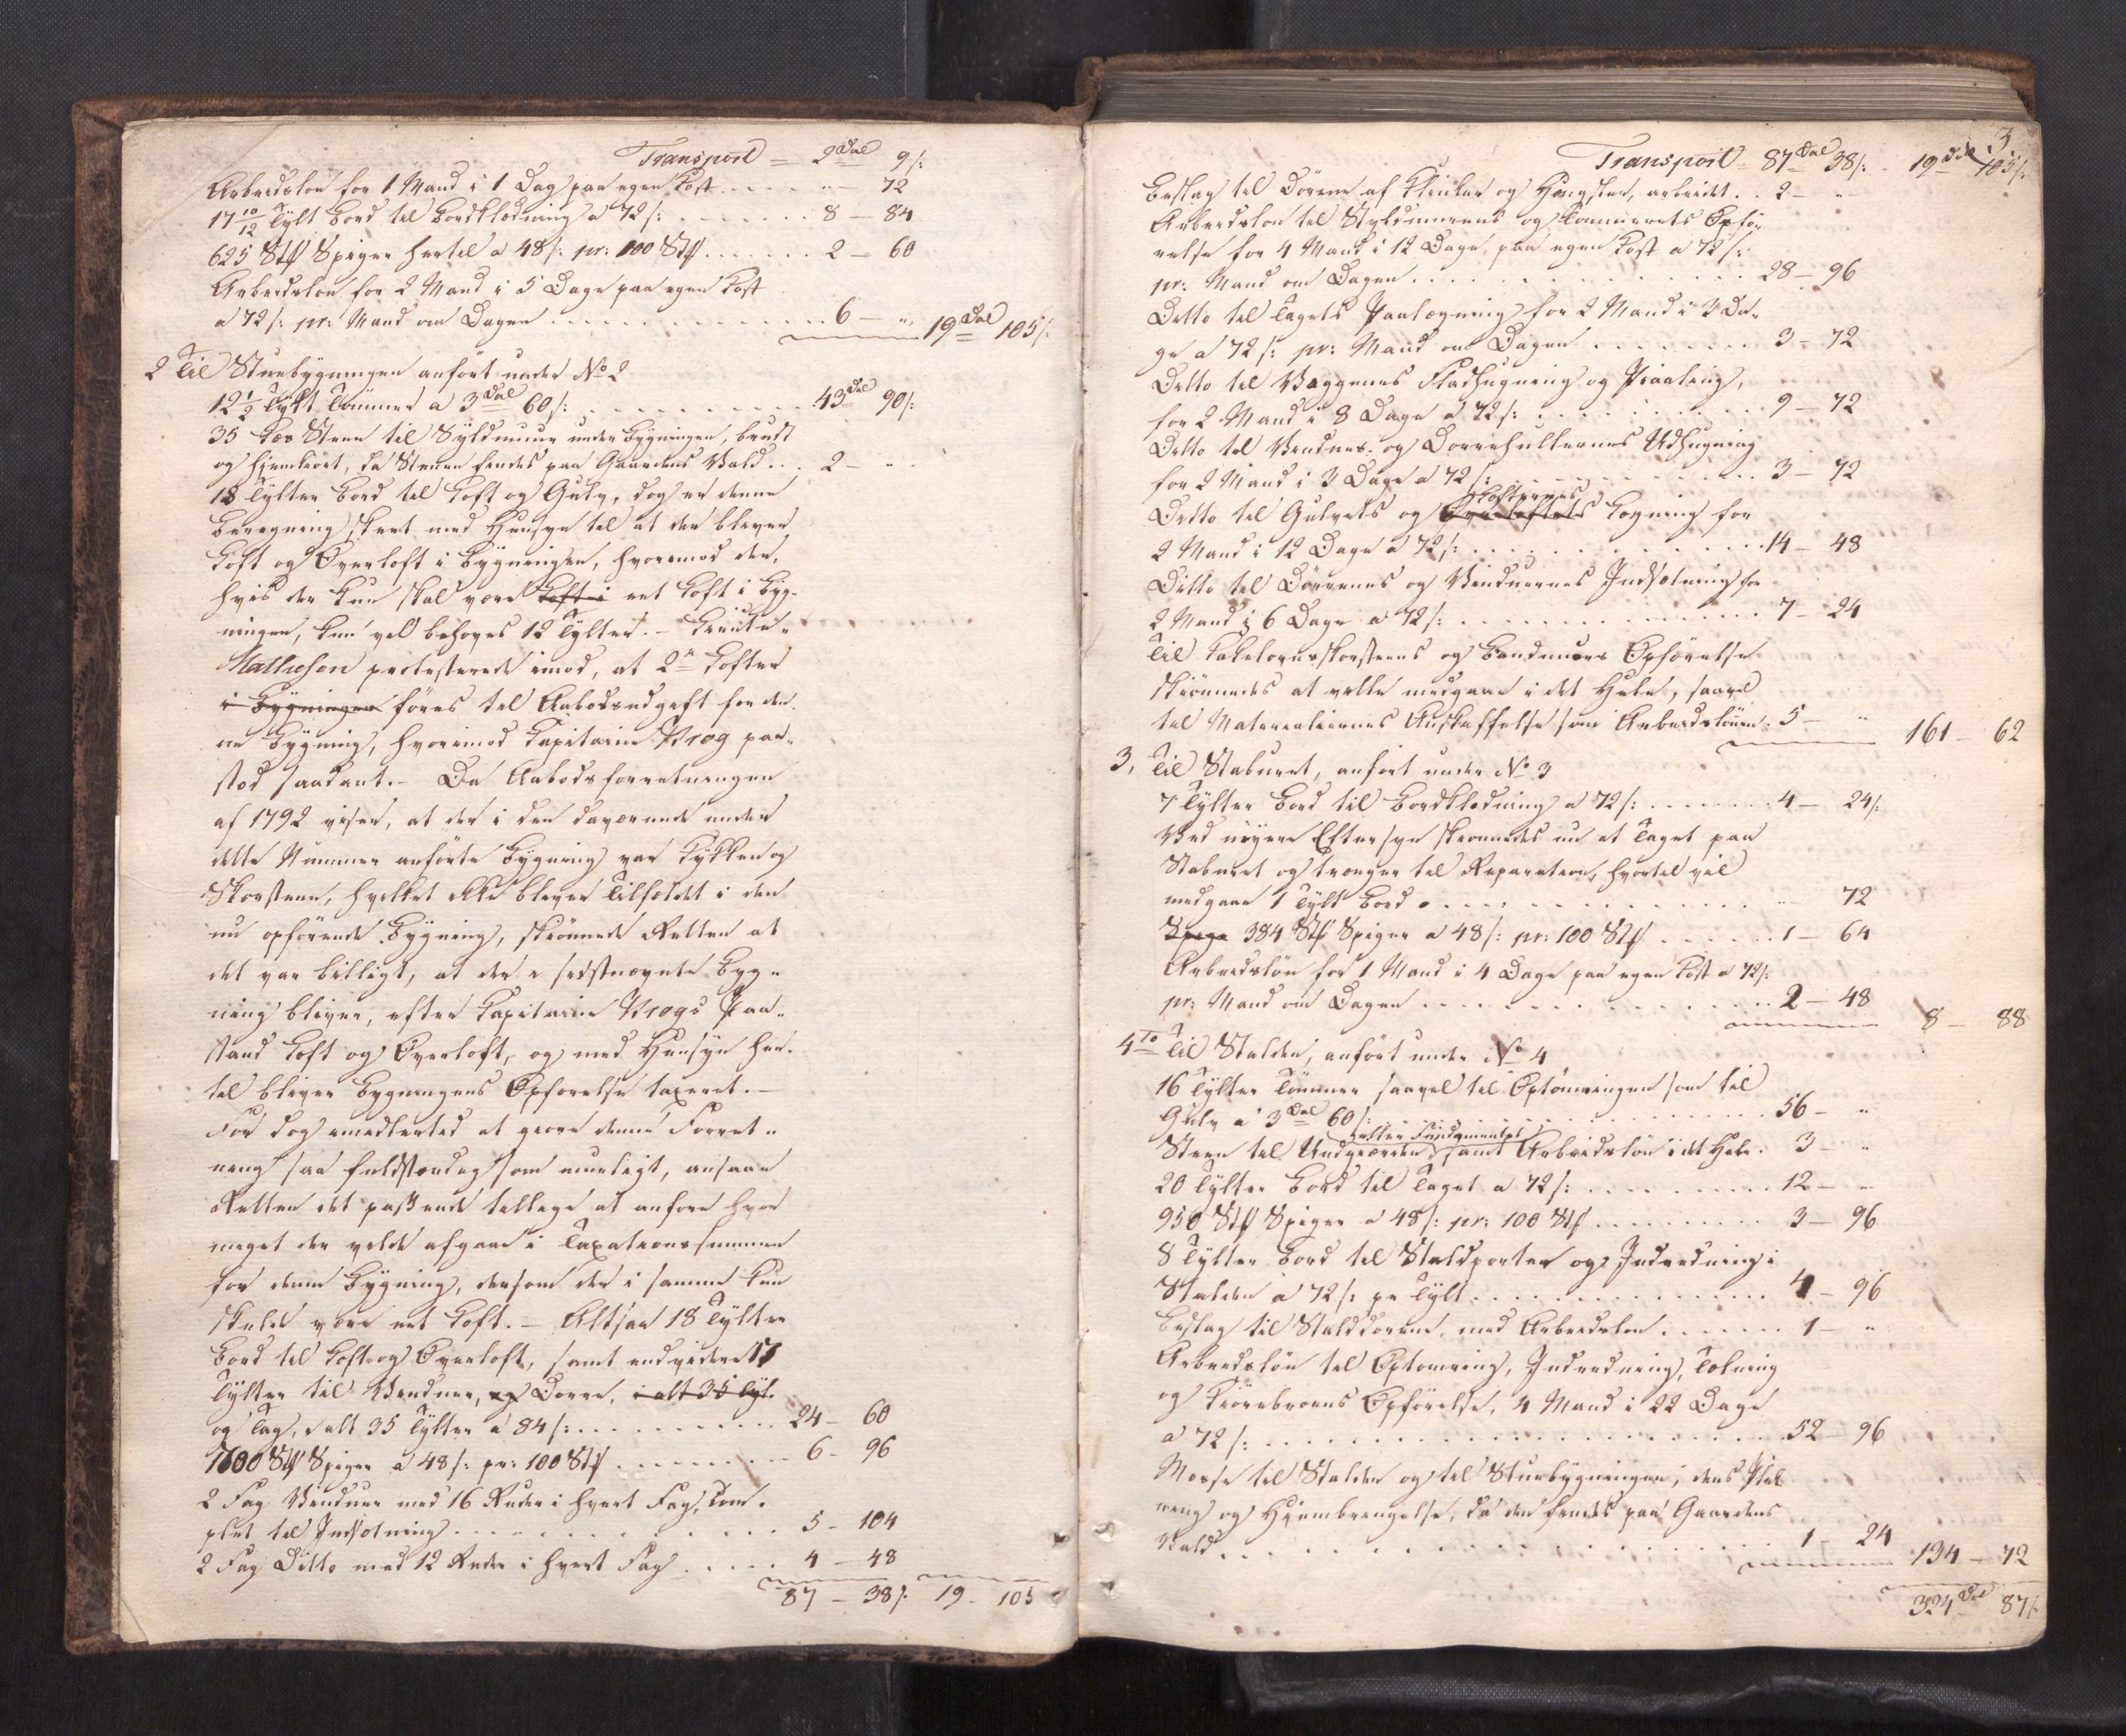 Transport = 2 Dal 9 /:
Arbeidslön for 1 Mand i 1 Dag paa egen Kost . . . . . „ — 72
17 10/12 Tylt Bord til Bordklædning a 72 /: . . . . . . . 8 — 84
625 Stk Spiger hertil a 48 /: pr: 100 Stk . . . . . . 2 — 60
Arbeidslön for 2 Mand i 5 Dage paa egen Kost
a 72 /: pr: Mand om Dagen . . . . . . . . . . . . 6 — „ 19 Dal 105 /:
2 Til Stuebygningen anfört under No 2
12 1/2 Tylt Tömmer a 3 Dal 60 /: . . . . . . . . . . 43 Dal 90 /:
35 Læs Steen til Syldmuur under Bygningen, brudt
og hjemkiört, da Stenen findes paa Gaardens Vald . . . 2 — „
18 Tylter Bord til Loft og Gulv, dog er denne
Beregning skeet med Hensyn til at der bliver
Loft og Overloft i Bygningen, hvorimod der,
hvis der kun skal være Loft i eet Loft i Byg-
ningen, kun vil behoves 12 Tylter. —
Mathieson protesterede imod, at 2de Lofter
i Bygningen föres til Aabodsudgift for den-
ne Bygning, hvorimod Kapitaine Krog paa-
stod saadant. — Da Aabodsforretningen
af 1792 viser, at der i den daværende under
dette Nummer anförte Bygning var Kjökken og
Skorsteen, hvilket ikke bliver Tilfældet i den
nu opförende Bygning, skiönnede Retten at
det var billigt, at der i sidstnævnte Byg-
ning bliver, efter Kapitaine Krogs Paa-
stand Loft og Overloft, og med Hensyn her-
til bliver Bygningens Opforelse taxeret. —
For dog imidlertid at giöre denne Forret-
ning saa fuldstændig som mueligt, ansaae
Retten det passende tillige at anföre hvor
meget der vilde afgaae i Taxationssummen
for denne Bygning, dersom der i samme kun
skulde være eet Loft. — Altsaa 18 Tylter
Bord til Loft og Overloft, samt endvidere 17
Tylter til Vinduer, og Dörre, i alt 35 Tylt
og Tag, i alt 35 Tylter a 84 /: . . . . . . . . . . 24 — 60
1600 Stk Spiger a 48 /: pr: 100 Stk . . . . . . . . . 6 — 96
2 Fag Vinduer med 16 Ruder i hvert Fag, kom-
plet til Indsætning . . . . . . . . . . . . . . 5 — 104
2 Fag Ditto med 12 Ruder i hvert Fag . . . . 4 — 48
87 — 38 /: 19 — 105
3.
Transport 87 Dal 38 /: 19 Dal 105 /:
Beslag til Dörene af Klinker og Hængsler, arbeidet . . 2 — „
Arbeidslön til Syldmurens og Tömmerets Opfö-
relse for 4 Mand i 12 Dage, paa egen Kost a 72 /:
pr: Mand om Dagen . . . . . . . . . . . . . . 28 — 96
Ditto til Tagets Paalægning for 2 Mand i 3 Da-
ge a 72 /: pr: Mand om Dagen . . . . . . . . 3 — 72
Ditto til Væggenes Fladhugning og
for 2 Mand i 8 Dage a 72 /: . . . . . . . . . . . 9 — 72
Ditto til Vindues- og Dorrehullernes Udhugning
for 2 Mand i 3 Dage a 72 /: . . . . . . . . . . . . 3 — 72
Lofternes
Ditto til Gulvets og Overloftets Lægning for
2 Mand i 12 Dage a 72 /: . . . . . . . . . . . . . 14 — 48
Ditto til Dörrenes og Vinduernes Indsætning for
2 Mand i 6 Dage a 72 /: . . . . . . . . . . . . . 7 — 24
Til Kakelovnsskorsteens og Brandmuurs Opförelse
skiönnedes at ville medgaae i det Hele, saavel
til Materialiernes Anskaffelse som Arbeidslönen : 5 — „ 161 — 62
3, Til Staburet, anfört under No 3
7 Tylter Bord til Bordklædning a 72 /: . . . . . . . 4 — 24 /:
Ved nöyere Eftersyn skiönnedes nu at Taget paa
Staburet og trænger til Reparation, hvortil vil
medgaae 1 Tylt Bord . . . . . . . . . . . . . . „ 72
Spige 384 Stk Spiger a 48 /: pr: 100 Stk . . . . . . 1 — 64
Arbeidslön for 1 Mand i 4 Dage paa egen Kost a 72 /:
pr: Mand om Dagen . . . . . . . . . . . . . . . 2 — 48 8 — 88
4to Til Stalden, anfört under No 4
16 Tylter Tömmer saavel til Optömringen som til
Gulv a 3 Dal 60 /: . . . . . . . . . . . . . . . . 56 — „
eller Fundamentet
Steen til samt Arbeidslön i det Hele . 3 — „
20 Tylter Bord til Taget a 72 /: . . . . . . . . . . 12 — „
950 Stk Spiger a 48 /: pr: 100 Stk . . . . . . . . . 3 — 96
8 Tylter Bord til Staldporter og Indredning i
Stalden a 72 /: pr Tylt . . . . . . . . . . . . . 4 — 96
Beslag til Stalddörene, med Arbeidslön . . . . . . . 1 — „
Arbeidslön til Optömring, Indredning, Tækning
og Kiörebroens Opförelse, 4 Mand i 22 Dage
a 72 /: . . . . . . . . . . . . . . . . . . . . . . 52 — 96
Mosse til Stalden og til Stuebygningen, dens
ning og Hjembringelse, da den findes paa Gaardens
Vald . . . . . . . . . . . . . . . . . . . . . . 1 — 24 134 — 72
324 Dal 87 /: